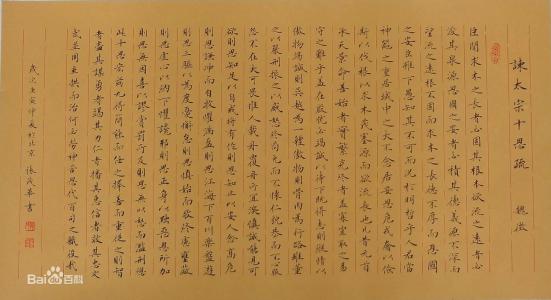 諫太宗十思疏 魏徵
臣聞求木之長者必固其根本欲流之遠者必
浚其泉源思國之安者必積其德義源不深而
望流之遠根不固而求木之長德不厚而思國
之安臣雖下愚知其不可而況於明哲乎人君當
神器之重居域中之大不念居安思危戒奢以儉
斯以伐根以求木茂塞源而欲流長也凡昔元首
承天景命善始者實繁克終者蓋寡豈取之易
守之難乎蓋在殷憂必竭誠以待下既得志則縱情以
傲物竭誠則吳越為一體傲物則骨肉為行路雖董
之以嚴刑振之以威怒終苟免而不懷仁貌恭而不心服
怨不在大可畏惟人載舟覆舟所宜深慎誠能見可
欲則思知足以自戒將有作則思知止以安人念高危
則思謙沖而自牧懼滿盈則思江海下百川樂盤遊
則思三驅以為度憂懈怠則思慎始而敬終慮壅蔽
則思虛心以納下懼讒邪則思正身以黜惡恩所加
則思無因喜以謬賞罰所及則思無以怒而濫刑總
此十思宏茲九德簡能而任之擇善而從之則智
者盡其謀勇者竭其力仁者播其惠信者效其忠文
武並用垂拱而治何必勞神苦思代百司之職役哉
歲次庚寅仲夏於北京 張茂春書
Bai百科